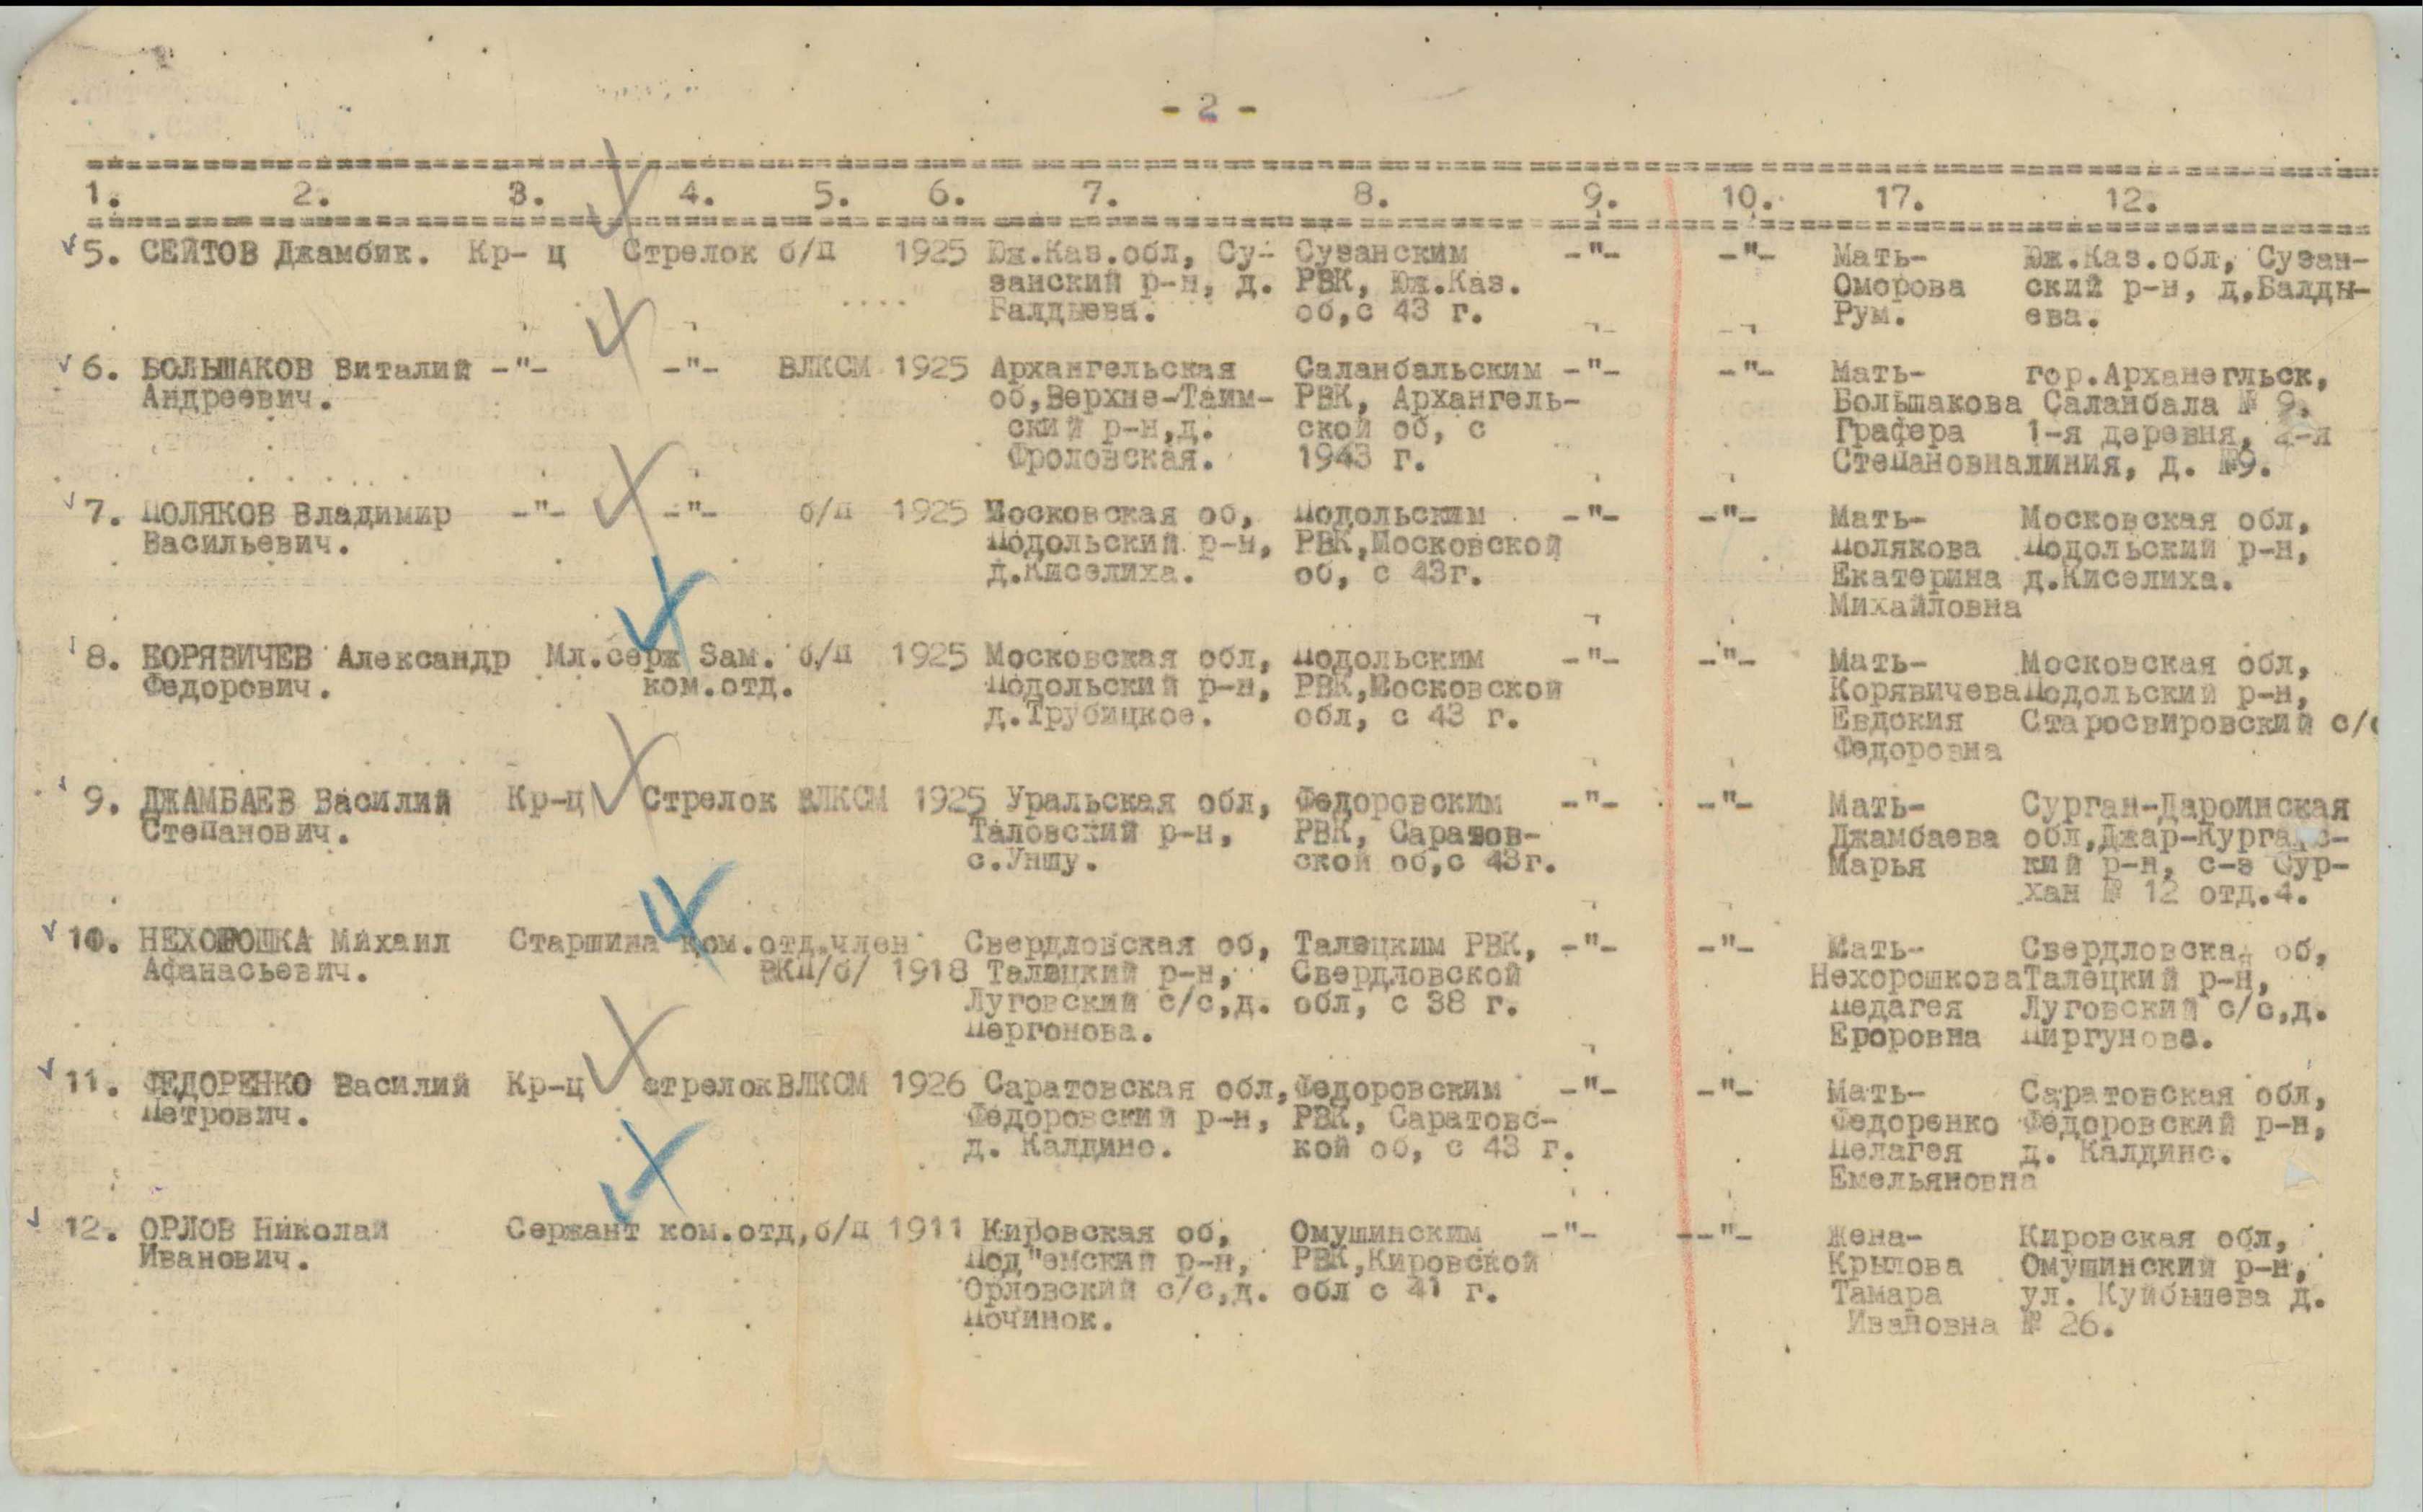 - 2 -
1. 2. 3. 4. 5. 6. 7. 8. 9. 10. 17. 12.
5. СЕЙТОВ Джамбик. Кр- ц Стрелок б/п 1925 Юж.Каз.обл, Су- Сузанским -"- -"- Мать- Юж.Каз.обл, Сузан-
занский р-н, д. РВК, Юж.Каз. Оморова ский р-н, д,Балды-
Балдыева. об,с 43 г. Рум. ева.
6. БОЛЬШАКОВ Виталий -"- -"- ВЛКСМ 1925 Архангельская Саланбальским -"- -"- Мать- гор.Архангльск,
Андреевич. об,Верхне-Таим- РВК, Архангель- Большакова Саланбала № 9.
ский р-н,д. ской об, с Графера 1-я деревня, 2-я
Фроловская. 1943 г. Степановна линия, д. №9.
7. ПОЛЯКОВ Владимир -"- -"- б/п 1925 Московская об, Подольским -"- -"- Мать- Московская обл,
Васильевич. Подольский р-н, РВК,Московской Полякова Подольский р-н,
д.Киселиха. об, с 43г. Екатерина д.Киселиха.
Михайловна
8. КОРЯВИЧЕВ Александр Мл.серж Зам. б/п 1925 Московская обл, Подольским -"- -"- Мать- Московская обл,
Федорович. ком.отд. Подольский р-н, РВК,Московской Корявичева Подольский р-н,
д.Трубицкое. обл, с 43 г. Евдокия Старосвировский с/с
Федоровна
9. ДЖАМБАЕВ Василий Кр-ц Стрелок ВЛКСМ 1925 Уральская обл, Федоровским -"- -"- Мать- Сурган-Дароинская
Степанович. Таловский р-н, РВК, Саратов- Джамбаева обл,Джар-Курганс-
с.Уншу. ской об,с 43г. Марья кий р-н, с-з Сур-
хан № 12 отд.4.
10. НЕХОРОШКА Михаил Старшина Ком.отд.член Свердловская об, Талецким РВК, -"- -"- Мать- Свердловская об,
Афанасьевич. ВКП/б/ 1918 Талецкий р-н, Свердловской Нехорошкова Талецкий р-н,
Луговский с/с,д. обл, с 38 г. Педагея Луговский с/с,д.
Пергонова. Ероровна Пиргунова.
11. ФЕДОРЕНКО Василий Кр-ц стрелок ВЛКСМ 1926 Саратовская обл, Федоровским -"- -"- Мать- Саратовская обл,
Петрович. Федоровский р-н, РВК, Саратовс- Федоренко Федоровский р-н,
д. Калдино. кой об, с 43 г. Пелагея д. Калдино.
Емельяновна
12. ОРЛОВ Николай Сержант ком.отд,б/п 1911 Кировская об, Омушинским -"- --"- Жена- Кировская обл,
Иванович. Под"емский р-н, РВК,Кировской Крылова Омушинский р-н,
Орловский с/с,д. обл с 41 г. Тамара ул. Куйбышева д.
Починок. Ивановна № 26.